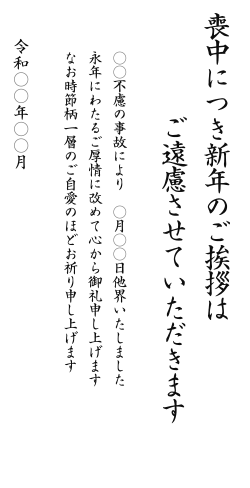 喪中につき新年のご挨拶は
ご遠慮させていただきます
〇〇不慮の事故により　〇月〇〇日他界いたしました
永年にわたるご厚情に改めて心から御礼申し上げます
なお時節柄一層のご自愛のほどお祈り申し上げます
令和〇〇年〇〇月